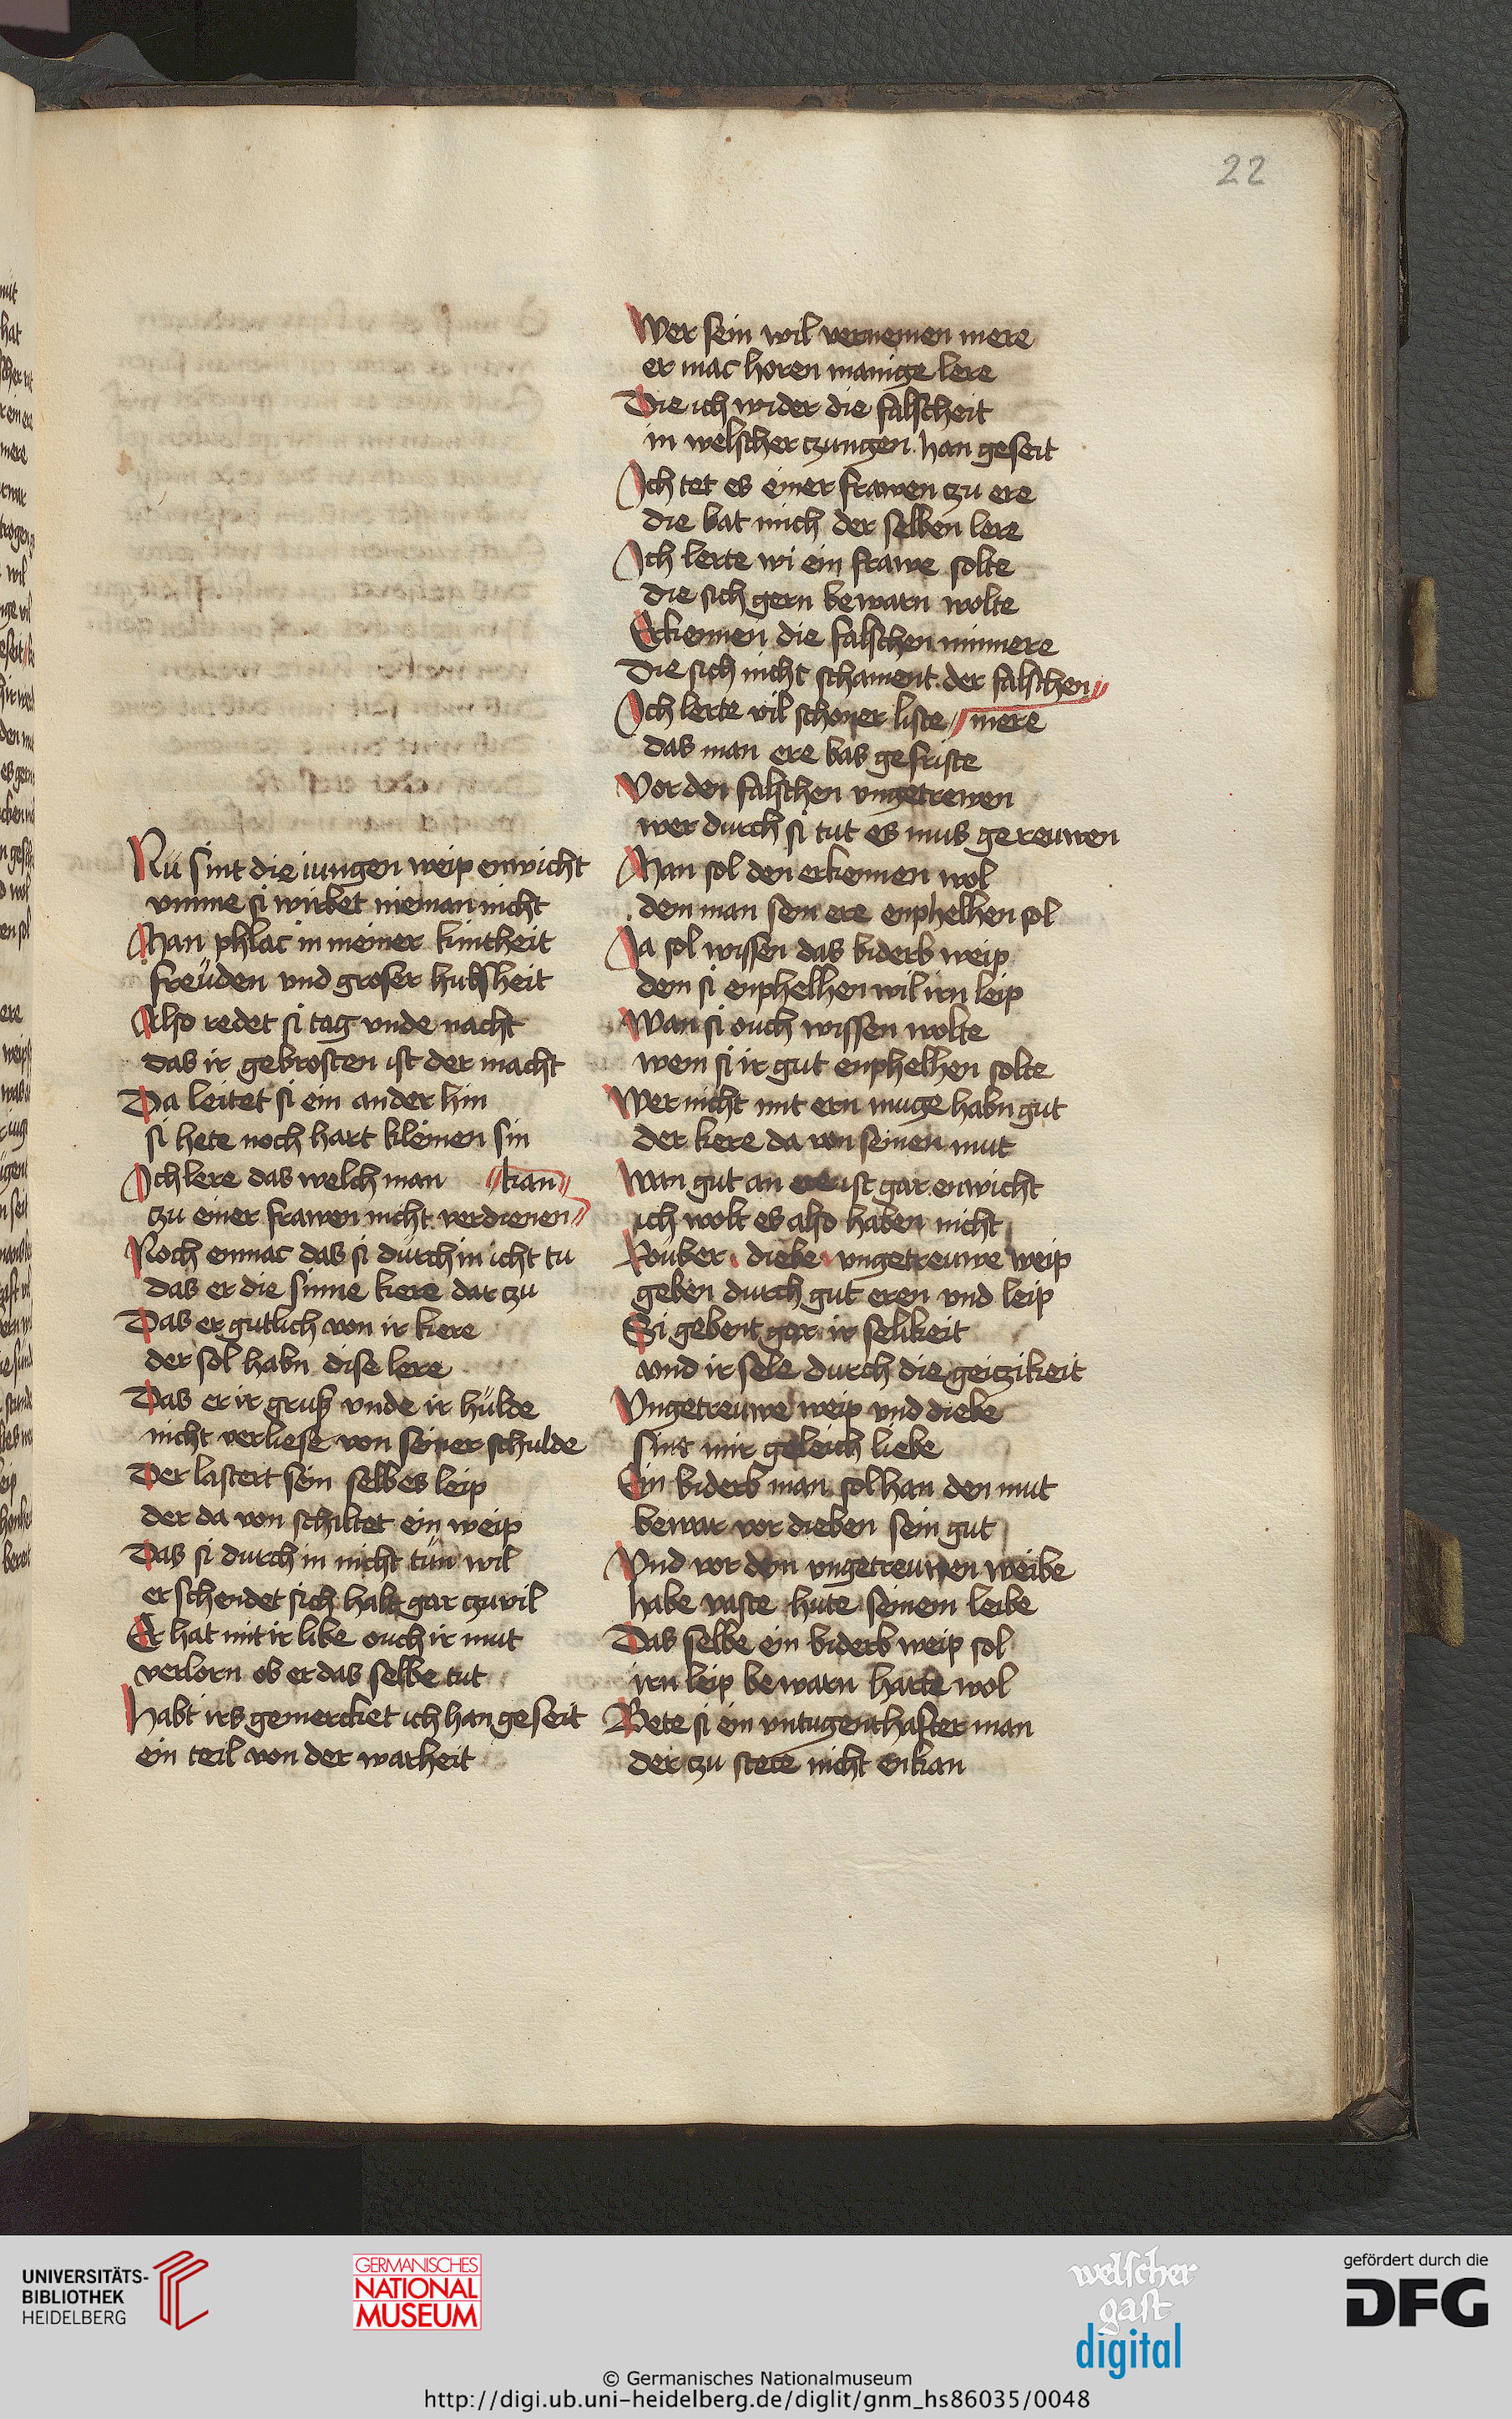 22
Nu sint die iungen weip enwicht
vmme si wirbet nieman nicht
Man phlac in meiner kintheit
freüden vnd groser hubsheit
Also redet si tag vnde nacht
das ir gebrosten ist der macht
Da leitet si ein ander hin
si hete noch hart kleinen sin
Ich lere das welch man
zu einer frawen nicht verdienen // kan //
Noch enmac das si durch in icht tu
das er die sinne kere dar zu
Das er gutlich von ir kere
der sol habn dise lere
Das er ir grus vnde ir hulde
nicht verliese von seiner schulde
Der lastert sein selbes leip
der da von schiltet ein weip
Das si durch in nicht tun wil
er schendet sich halt gar zu vil
Er hat mit ir libe ouch ir mut
verlorn ob er das selbe tut
Habt irs gemercket ich han geseit
ein teil von der warheit
Wer sein wil vernemen mere
er mac horen manige lere
Die ich wider die falscheit
in welscher czungen han geseit
Ich tet es einer frawen czu ere
die bat mich der selben lere
Ich lerte wi ein frawe solte
die sich gern bewarn wolte
Erkennen die falschen minnere
die sich nicht schament der falschen //
Ich lerte vil schoner liste // mere
das man ere bas gefriste
Vor den falschen vngetrewen
wer durch si tut es mus gereuwen
Man sol den erkennen wol
dem man sein ere enphelhen sol
Ja sol wissen das biderb weip
dem si enphelhen wil irn leip
Wan si ouch wissen wolte
wem si ir gut enphelhen solte
Wer nicht mit ern muge habn gut
der kere da von seinen mut
Wan gut an ere ist gar enwicht
ich wolt es also haben nicht
Rouber diebe vngetreuwe weip
geben durch gut eren vnd leip
Si gebent gar ir selikeit
vnd ir sele durch die geiczikeit
Vngetreuwe weip vnd diebe
sint mir geleich liebe
Ein biderb man sol han den mut
bewar vor dieben sein gut
Vnd vor dem vngetreuwen weibe
habe vaste hute seinem leibe
Das selbe ein biderb weip sol
irn leip bewarn harte wol
Bete si ein vntugenthafter man
der czu stete nicht enkan
UNIVERSITÄTS-
BIBLIOTHEK
HEIDELBERG
GERMANISCHES
NATIONAL
MUSEUM
welscher
gast
digital
gefördert durch die
DFG
© Germanisches Nationalmuseum
http://digi.ub.uni-heidelberg.de/diglit/gnm_hs86035/0048